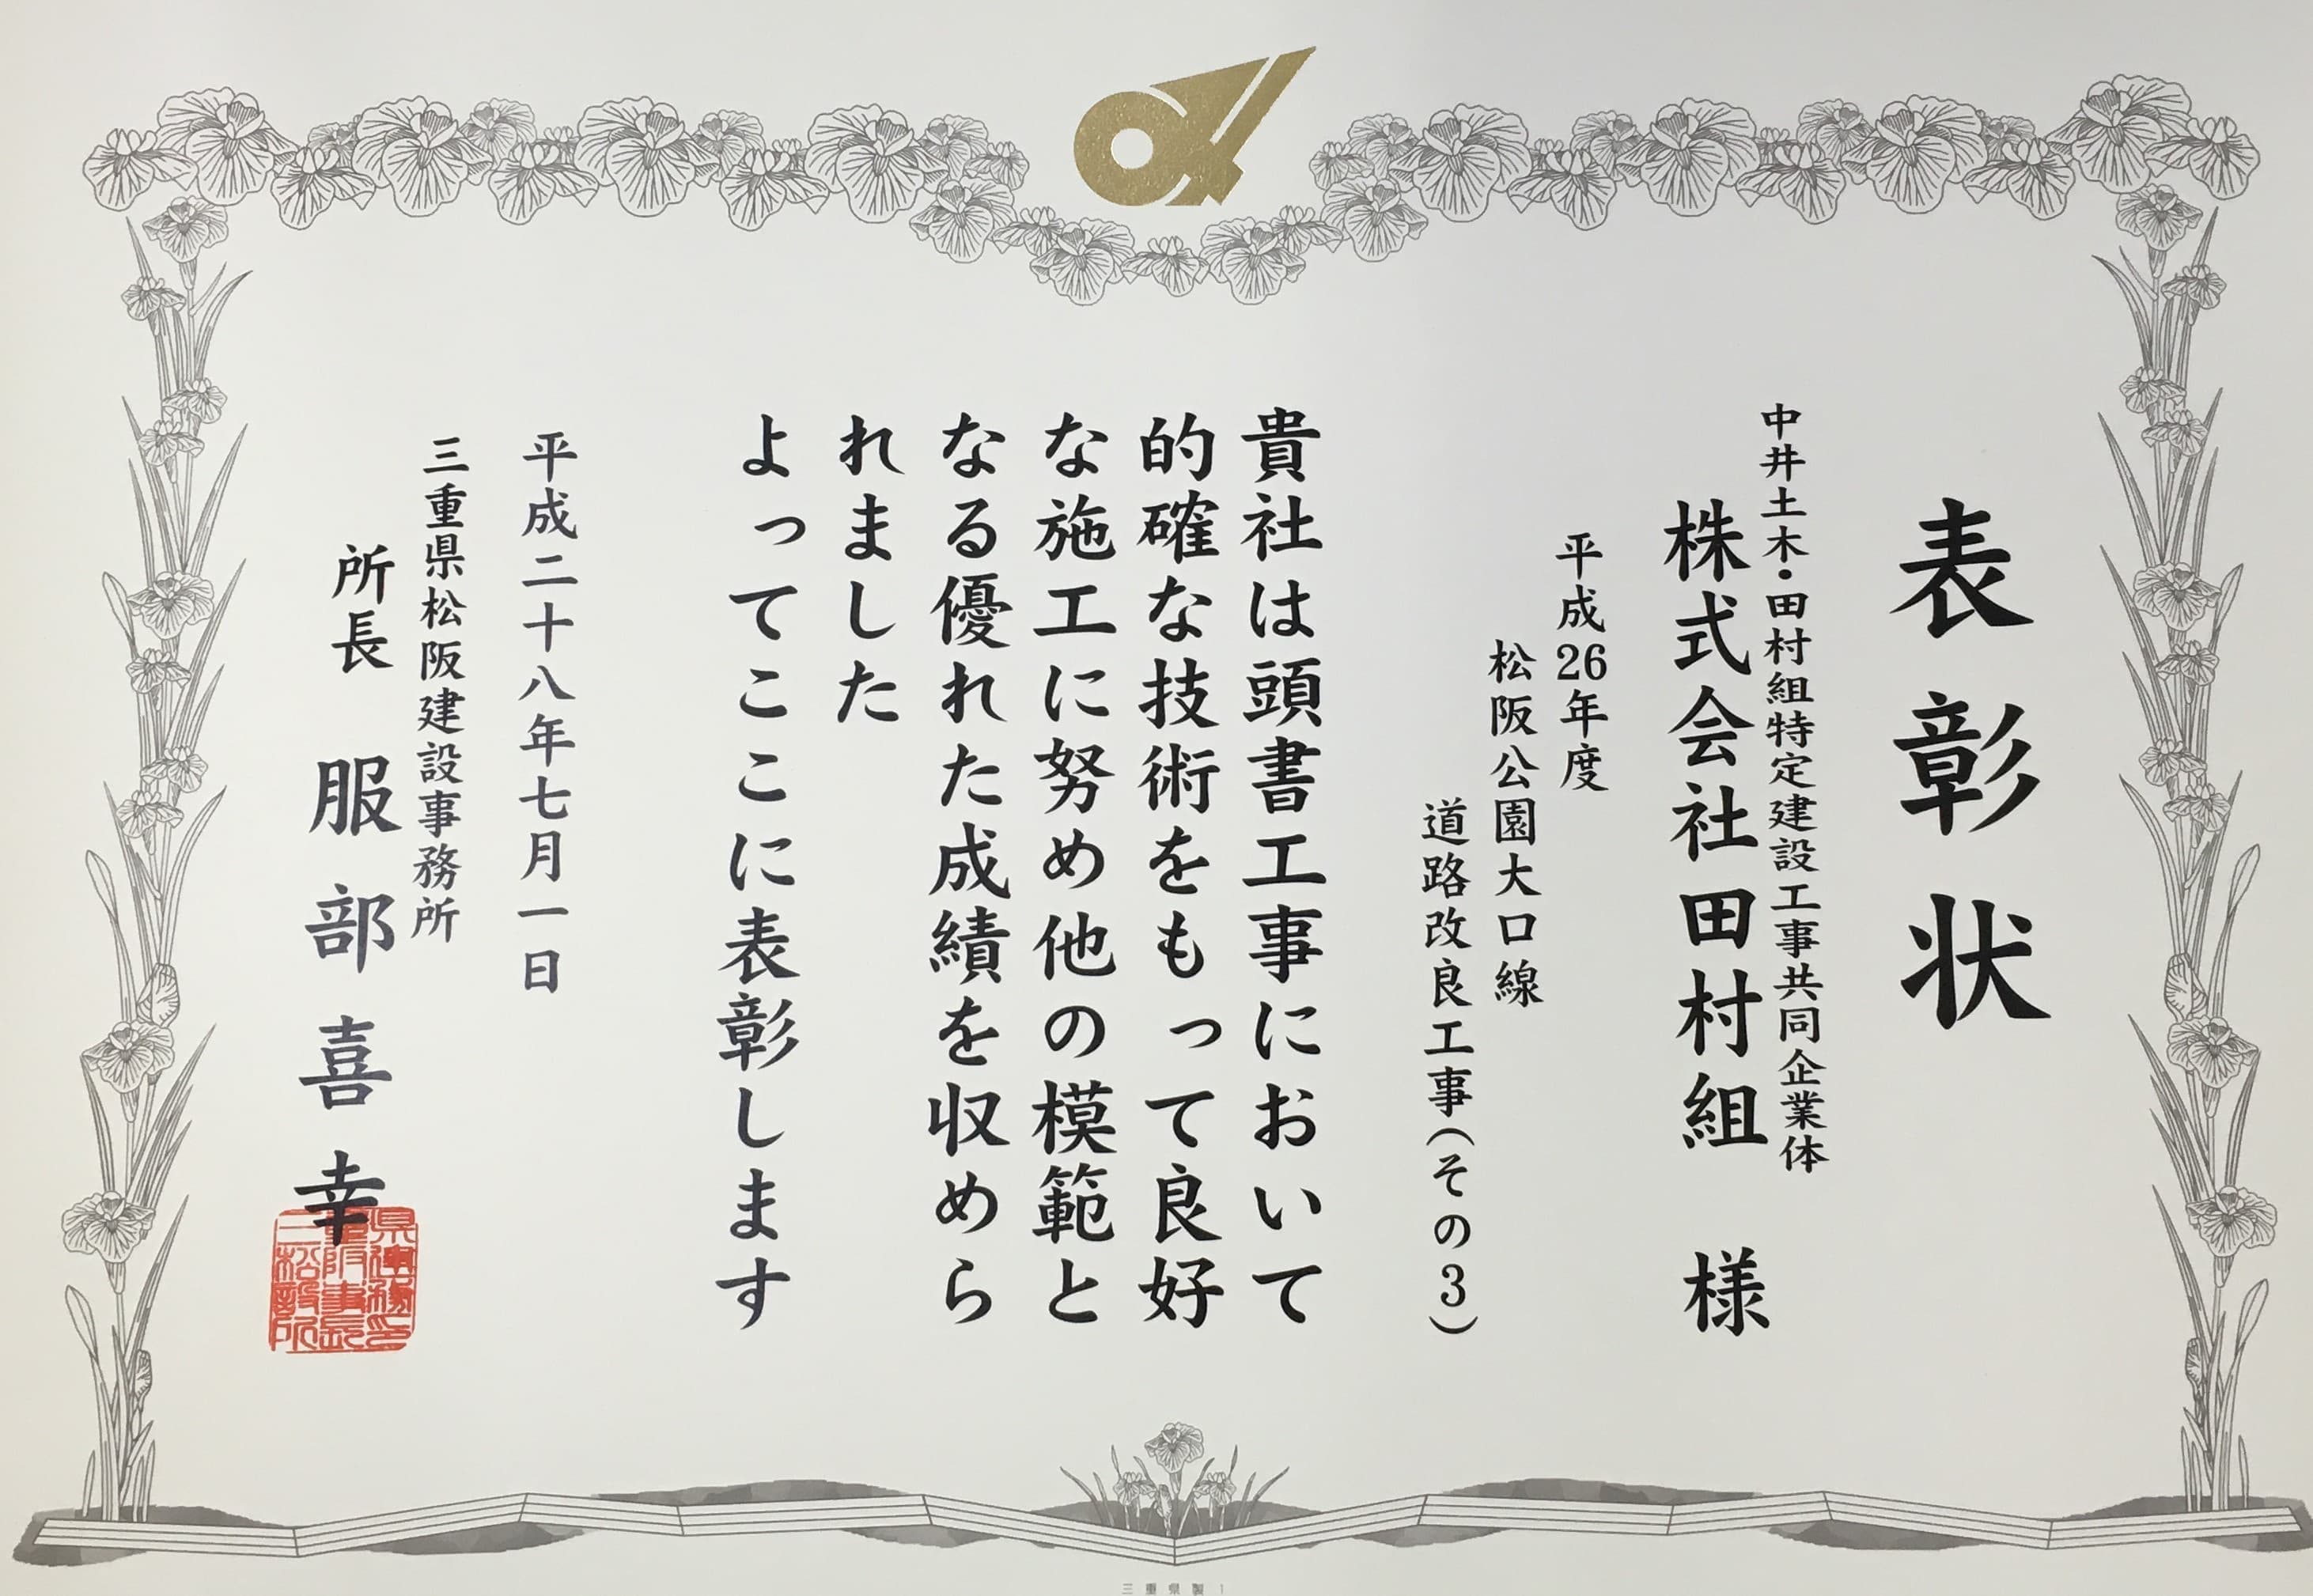 表彰状
中井土木・田村組特定建設工事共同企業体
株式会社田村組 様
平成26年度
松阪公園大口線
道路改良工事(その3)
貴社は頭書工事において
的確な技術をもって良好
な施工に努め他の模範と
なる優れた成績を収めら
れました
よってここに表彰します
平成二十八年七月一日
三重県松阪建設事務所
所長 服部喜幸
三重県製1